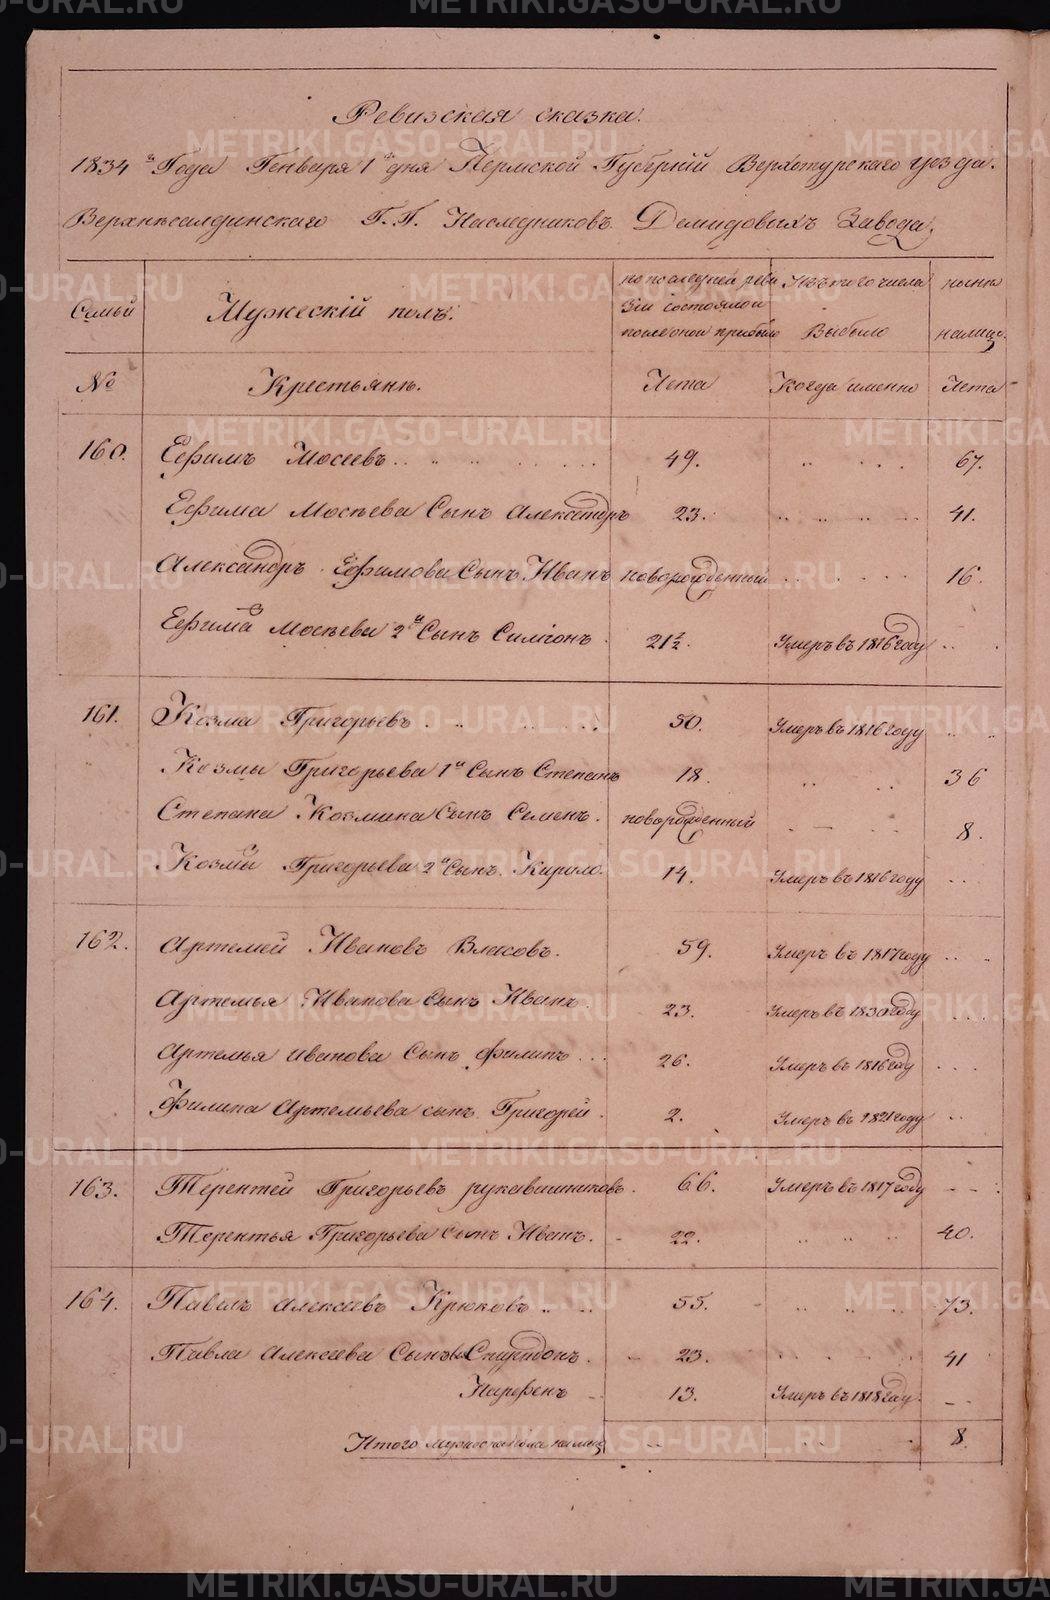 Ревизская сказка.
1834 го Года Генваря 1 дня Пермской Губернiи Верхотурскаго уезда.
Верхнесалдинскаго Г.Г. Наследниковъ Демидовыхъ Завода,
Семьи Мужескiй полъ. по последней ревизiи состояло и после оной прибыло Изъ того числа Выбыло ныне налицо.
№ Крестьяне. Лета Когда именно Лета
160. Ефимъ Мосеевъ 49. 67.
Ефима Мосеева Сынъ Александръ 23. 41.
Александръ Ефимова Сынъ Иванъ новорожденный 16.
Ефима Мосеева 2й Сынъ Симiонъ. 21½. Умеръ въ 1816 году
161. Козма Григорьевъ 50. Умеръ въ 1816 году
Козмы Григорьева 1й Сынъ Степанъ 18. 36
Степана Козмина Сынъ Семенъ. новорожденный 8.
Козмы Григорьева 2й Сынъ Кирило. 14. Умеръ въ 1816 году
162. Артемей Ивановъ Власовъ. 59. Умеръ въ 1817 году
Артемья Иванова Сынъ Иванъ. 23. Умеръ въ 1830 году
Артемья Иванова Сынъ Филипъ 26. Умеръ въ 1816 году
Филипа Артемьева сынъ Григорей. 2. Умеръ въ 1821 году
163. Терентей Григорьевъ рукавишниковъ. 66. Умеръ въ 1817 году
Терентья Григорьева сынъ Иванъ. 22. 40.
164. Павелъ Алексеевъ Крюковъ 55. 73.
Павла Алексеева Сынъ Спиридонъ. 23. 41
Парфенъ 13. Умеръ въ 1818 году.
Итого мужеска пола налицо 8.
METRIKI.GASO-URAL.RU